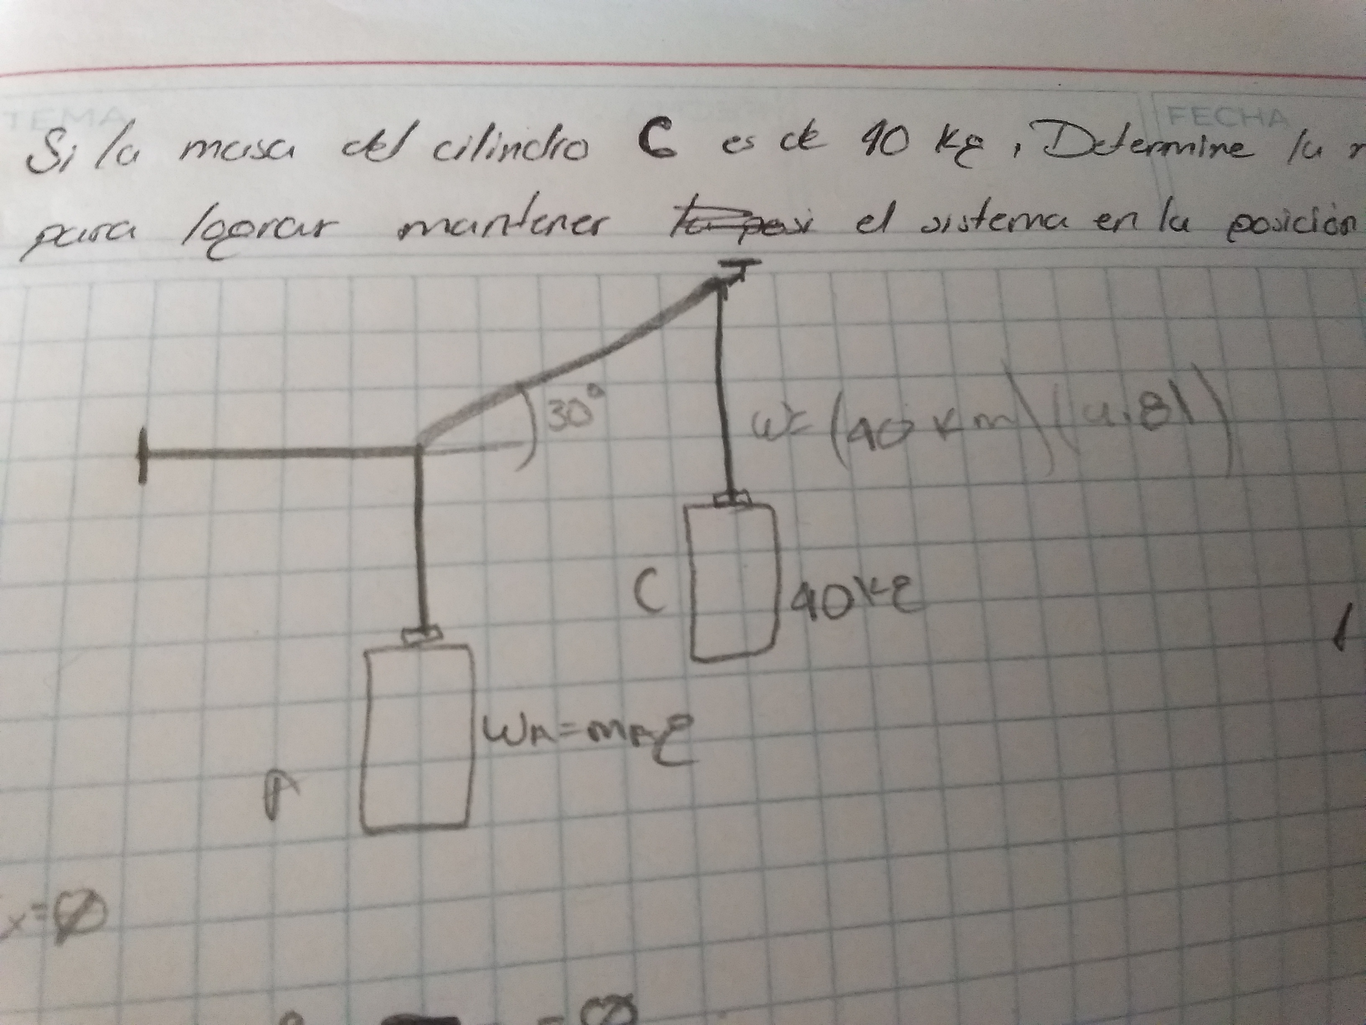 TEMA
FECHA
Si la masa del cilindro C es de 40 kg, Determine la
para lograr mantener el sistema en la posición
30°
W=(40 km)(9.81)
C
40kg
WA=mAg
A
x=0
=0